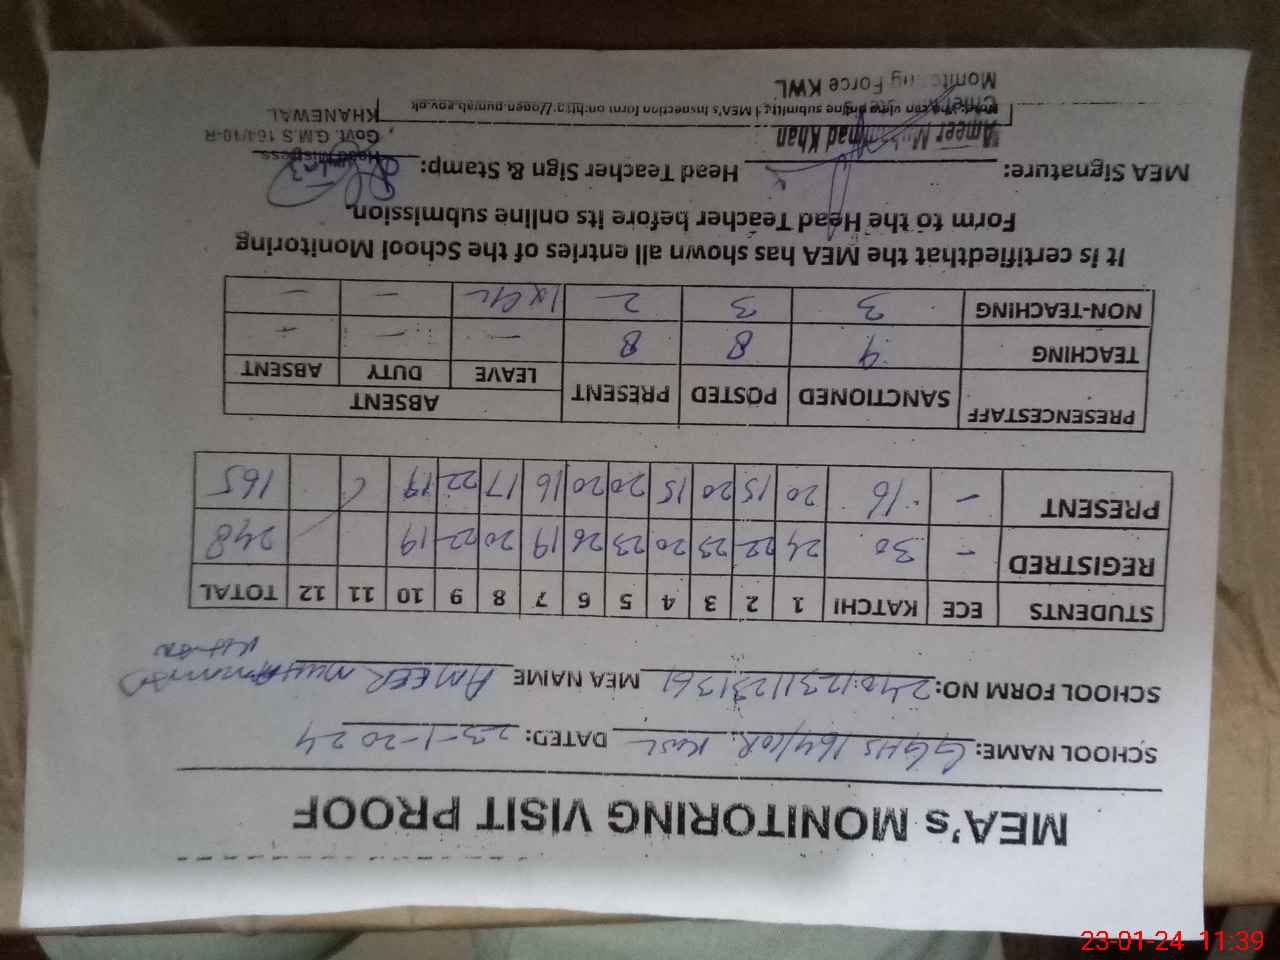 MEA's MONITORING VISIT PROOF
SCHOOL NAME: GGHS 164/10R. KWL DATED: 23-1-2024
SCHOOL FORM NO: MEA NAME AMEER MUHAMMAD
STUDENTS ECE KATCHI 1 2 3 4 5 6 7 8 9 10 11 12 TOTAL
REGISTRED - 30 24 22 23 20 23 26 19 20 22 19 248
PRESENT - 16 20 15 20 15 20 20 16 17 22 19 165
PRESENCESTAFF SANCTIONED POSTED PRESENT ABSENT
LEAVE DUTY ABSENT
TEACHING 9 8 8 - - -
NON-TEACHING 3 3 2 - -
It is certifiedthat the MEA has shown all entries of the School Monitoring
Form to the Head Teacher before its online submission.
MEA Signature: Head Teacher Sign & Stamp:
Ameer Muhammad Khan
Head Mistress
Govt. G.M.S 164/10-R
KHANEWAL
can view online submitted MEA's Inspection form on:http://open.punjab.gov.pk
Monitoring Force KWL
23-01-24 11:39